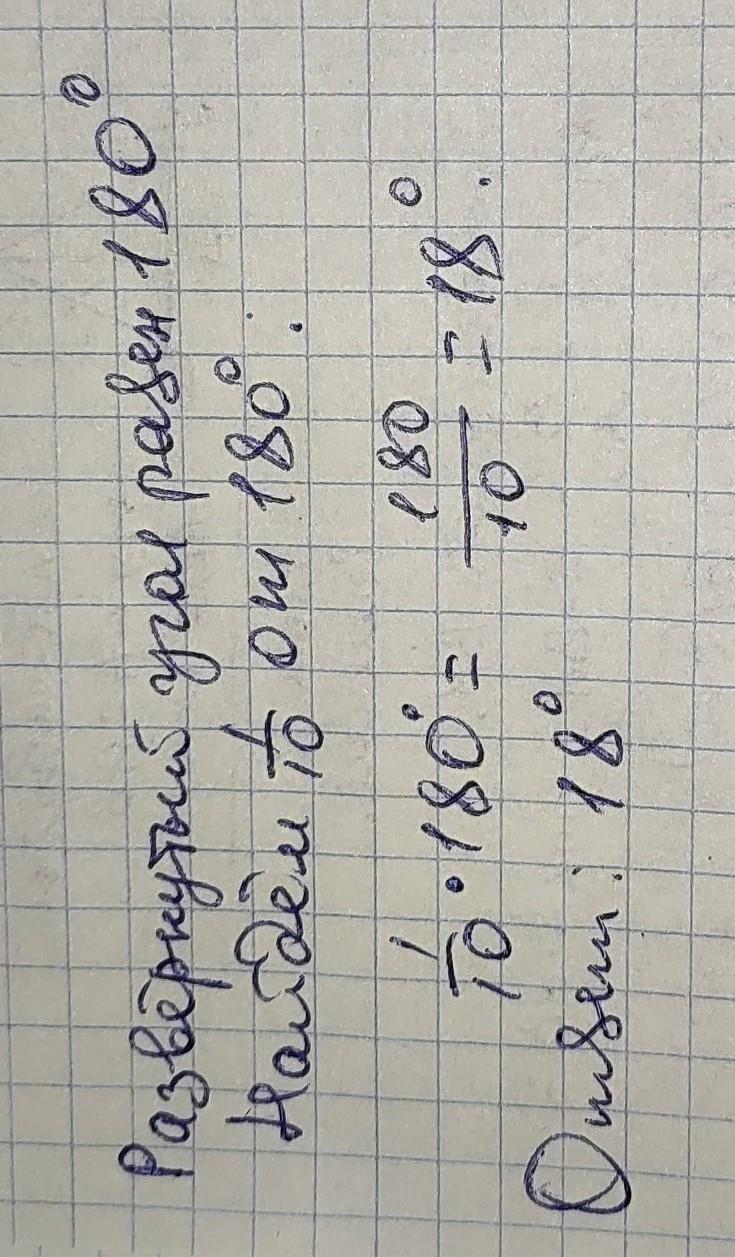 Развёрнутый угол равен 180°
Найдём 1/10 от 180°:
1/10 · 180° = 180/10 = 18°.
Ответ: 18°